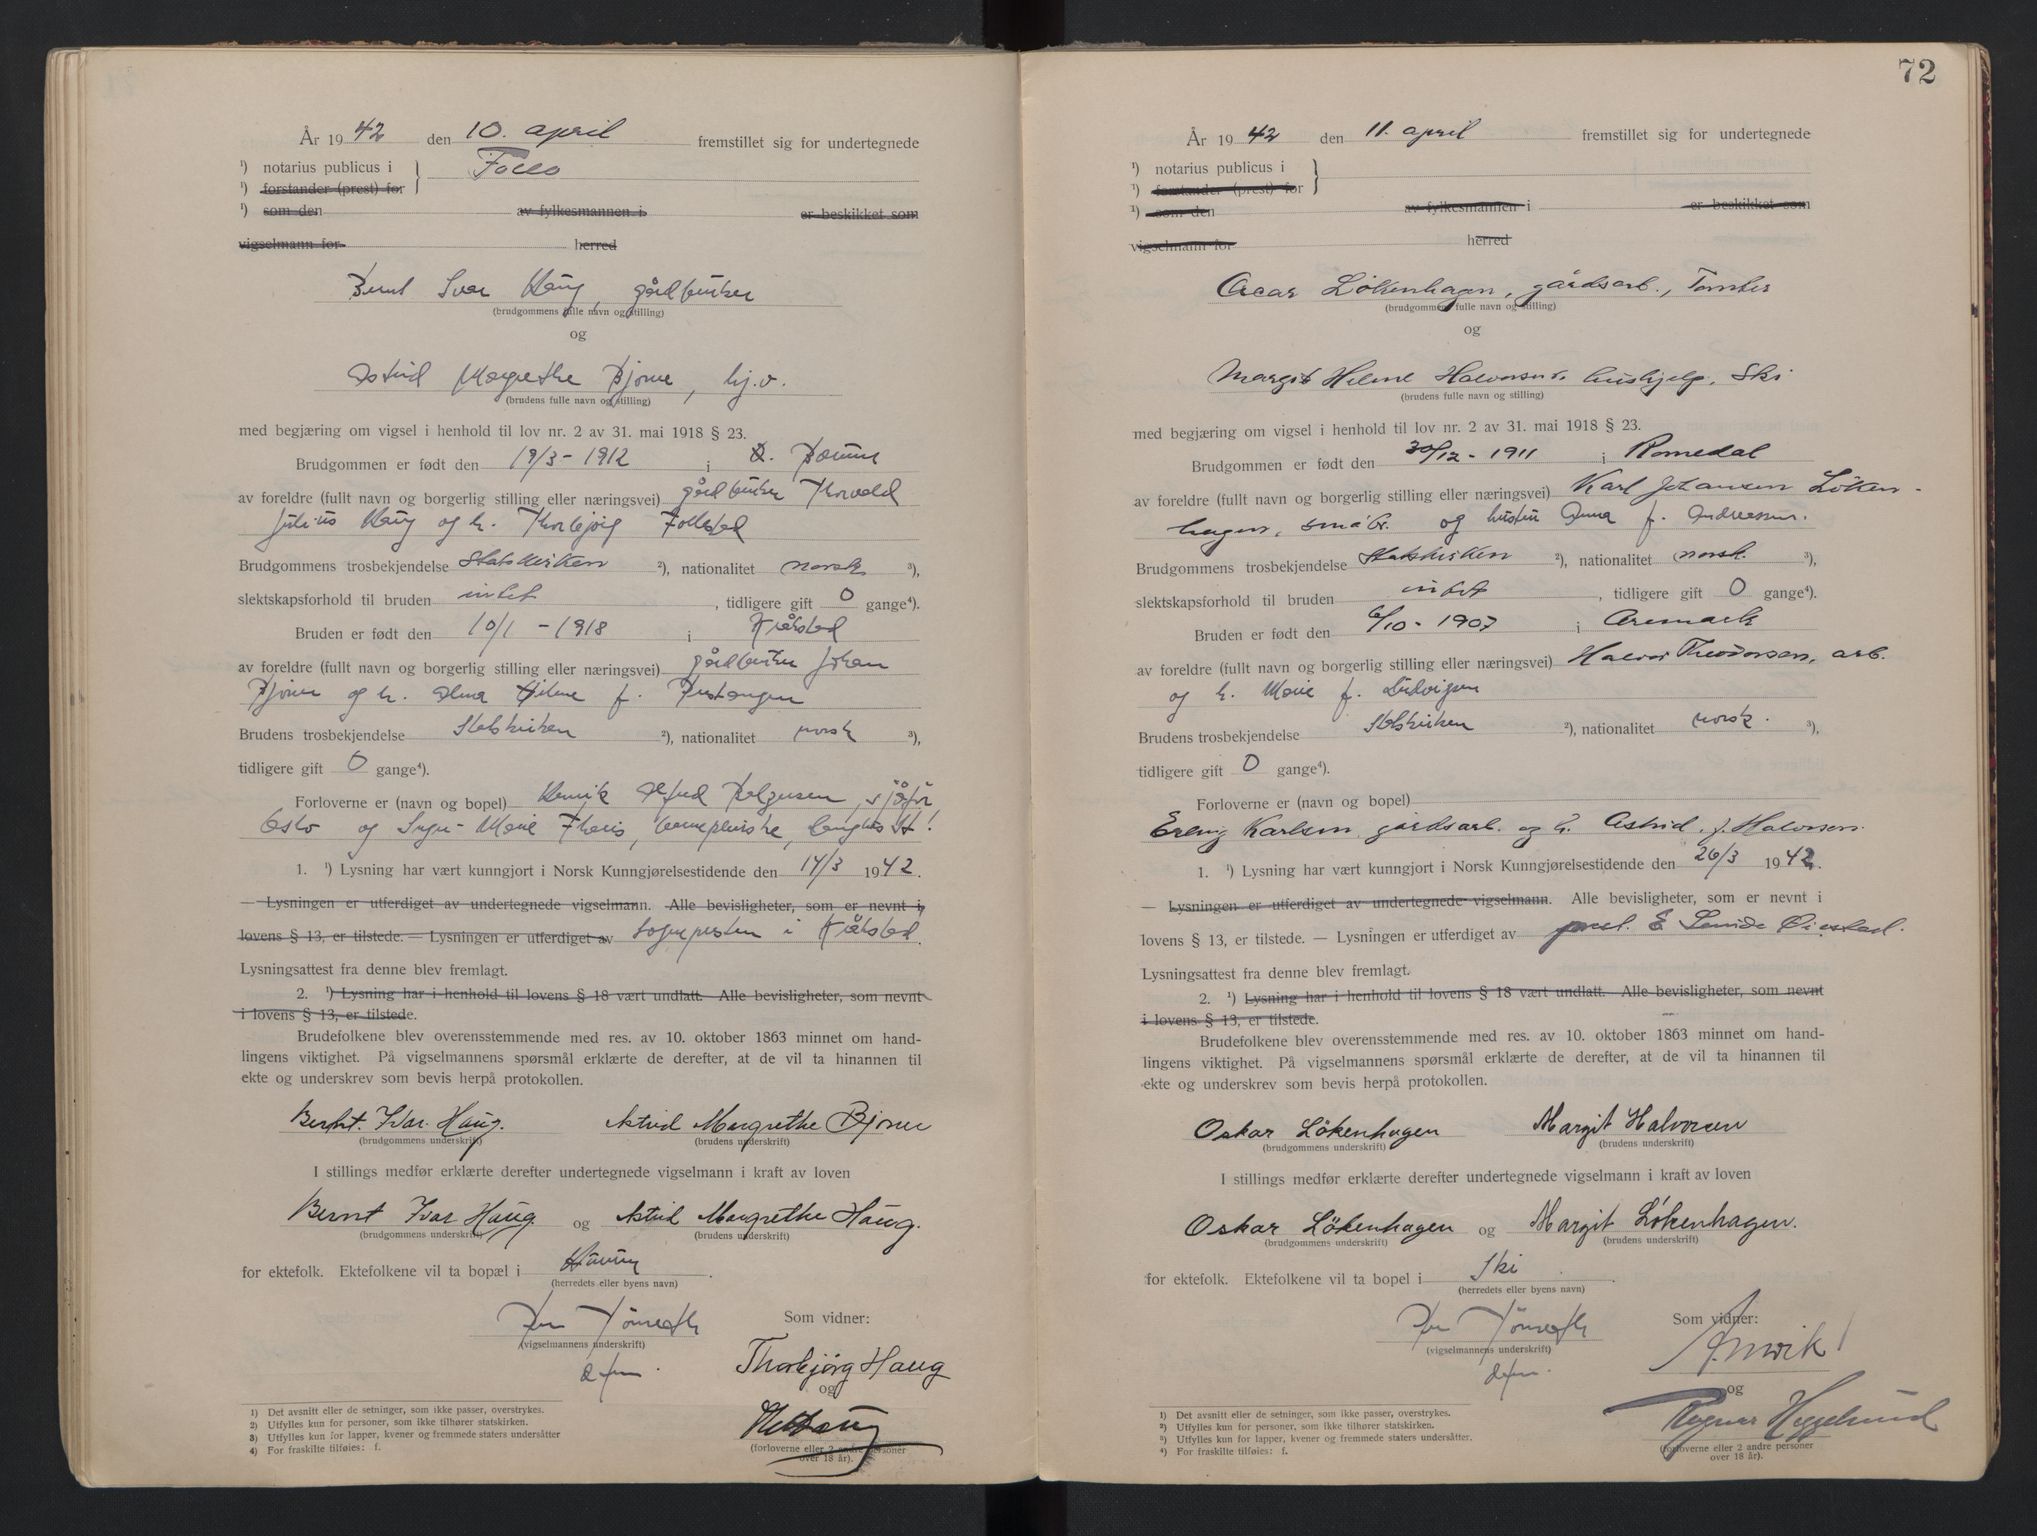 År 1942 den 10. april fremstillet sig for undertegnede
¹) notarius publicus i Follo
¹) forstander (prest) for
¹) som den av fylkesmannen i er beskikket som
vigselmann for herred
Bernt Ivar Haug, gårdbruker
(brudgommens fulle navn og stilling)
og
Astrid Margrethe Bjørne, hj.v.
(brudens fulle navn og stilling)
med begjæring om vigsel i henhold til lov nr. 2 av 31. mai 1918 § 23.
Brudgommen er født den 19/3 - 1912 i
av foreldre (fullt navn og borgerlig stilling eller næringsvei) gårdbruker Thorvald
Julius Haug og h. Thorbjørg Follestad
Brudgommens trosbekjendelse Statskirken ²), nationalitet norsk ³),
slektskapsforhold til bruden intet, tidligere gift 0 gange⁴).
Bruden er født den 10/1 - 1918 i Kråkstad
av foreldre (fullt navn og borgerlig stilling eller næringsvei) gårdbruker Johan
og h. f.
Brudens trosbekjendelse Statskirken ²), nationalitet norsk ³),
tidligere gift 0 gange⁴).
Forloverne er (navn og bopel) Henrik Alfred sjåfør,
Oslo og Marie
1. ¹) Lysning har vært kunngjort i Norsk Kunngjørelsestidende den 14/3 1942.
— Lysningen er utferdiget av undertegnede vigselmann. Alle bevisligheter, som er nevnt i
lovens § 13, er tilstede. — Lysningen er utferdiget av Sognepresten i Kråkstad.
Lysningsattest fra denne blev fremlagt.
2. ¹) Lysning har i henhold til lovens § 18 vært undlatt. Alle bevisligheter, som nevnt
i lovens § 13, er tilstede.
Brudefolkene blev overensstemmende med res. av 10. oktober 1863 minnet om hand-
lingens viktighet. På vigselmannens spørsmål erklærte de derefter, at de vil ta hinannen til
ekte og underskrev som bevis herpå protokollen.
Bernt. Ivar. Haug. Astrid Margrethe Bjørne
(brudgommens underskrift) (brudens underskrift)
I stillings medfør erklærte derefter undertegnede vigselmann i kraft av loven
Bernt Ivar Haug og Astrid Margrethe Haug.
(brudgommens underskrift) (brudens underskrift)
for ektefolk. Ektefolkene vil ta bopæl i
(herredets eller byens navn)
Som vidner:
(vigselmannens underskrift)
Thorbjørg Haug
og
(forloverne eller 2 andre personer
over 18 år).
1) Det avsnitt eller de setninger, som ikke passer, overstrykes.
2) Utfylles kun for personer, som ikke tilhører statskirken.
3) Utfylles kun for lapper, kvener og fremmede staters undersåtter
4) For fraskilte tilføies: f.
72
År 1942 den 11. april fremstillet sig for undertegnede
¹) notarius publicus i
¹) forstander (prest) for
¹) som den av fylkesmannen i er beskikket som
vigselmann for herred
Oscar Løkenhagen, gårdsarb., Tomter
(brudgommens fulle navn og stilling)
og
Margit Helene Halvorsen, hushjelp, Ski
(brudens fulle navn og stilling)
med begjæring om vigsel i henhold til lov nr. 2 av 31. mai 1918 § 23.
Brudgommen er født den 30/12 - 1911 i Romedal
av foreldre (fullt navn og borgerlig stilling eller næringsvei) Karl Johansen Løken-
hagen, småbr. og hustru Anna f. Andreassen.
Brudgommens trosbekjendelse Statskirken ²), nationalitet norsk. ³),
slektskapsforhold til bruden intet, tidligere gift 0 gange⁴).
Bruden er født den 6/10 - 1907 i Aremark
av foreldre (fullt navn og borgerlig stilling eller næringsvei) Halvor Theodorsen, arb.
og h. Marie f. Ludvigsen
Brudens trosbekjendelse Statskirken ²), nationalitet norsk. ³),
tidligere gift 0 gange⁴).
Forloverne er (navn og bopel)
Erling Karlsen, gårdsarb. og h. Astrid. f. Halvorsen.
1. ¹) Lysning har vært kunngjort i Norsk Kunngjørelsestidende den 26/3 1942.
— Lysningen er utferdiget av undertegnede vigselmann. Alle bevisligheter, som er nevnt i
lovens § 13, er tilstede. — Lysningen er utferdiget av prest. E
Lysningsattest fra denne blev fremlagt.
2. ¹) Lysning har i henhold til lovens § 18 vært undlatt. Alle bevisligheter, som nevnt
i lovens § 13, er tilstede.
Brudefolkene blev overensstemmende med res. av 10. oktober 1863 minnet om hand-
lingens viktighet. På vigselmannens spørsmål erklærte de derefter, at de vil ta hinannen til
ekte og underskrev som bevis herpå protokollen.
Oskar Løkenhagen Margit Halvorsen
(brudgommens underskrift) (brudens underskrift)
I stillings medfør erklærte derefter undertegnede vigselmann i kraft av loven
Oskar Løkenhagen og Margit Løkenhagen.
(brudgommens underskrift) (brudens underskrift)
for ektefolk. Ektefolkene vil ta bopel i Ski
(herredets eller byens navn)
Som vidner:
(vigselmannens underskrift)
og
Ragnar Heggelund
(forloverne eller 2 andre personer
over 18 år).
¹) Det avsnitt eller de setninger, som ikke passer, overstrykes.
²) Utfylles kun for personer, som ikke tilhører statskirken.
³) Utfylles kun for lapper, kvener og fremmede staters undersåtter.
⁴) For fraskilte tilføies: f.